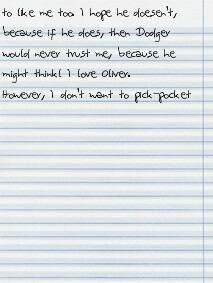 to like me too. I hope he doesen't,
because if he does, then Dodger
would never trust me, because he
might think I love Oliver.
However, I don't want to pick-pocket